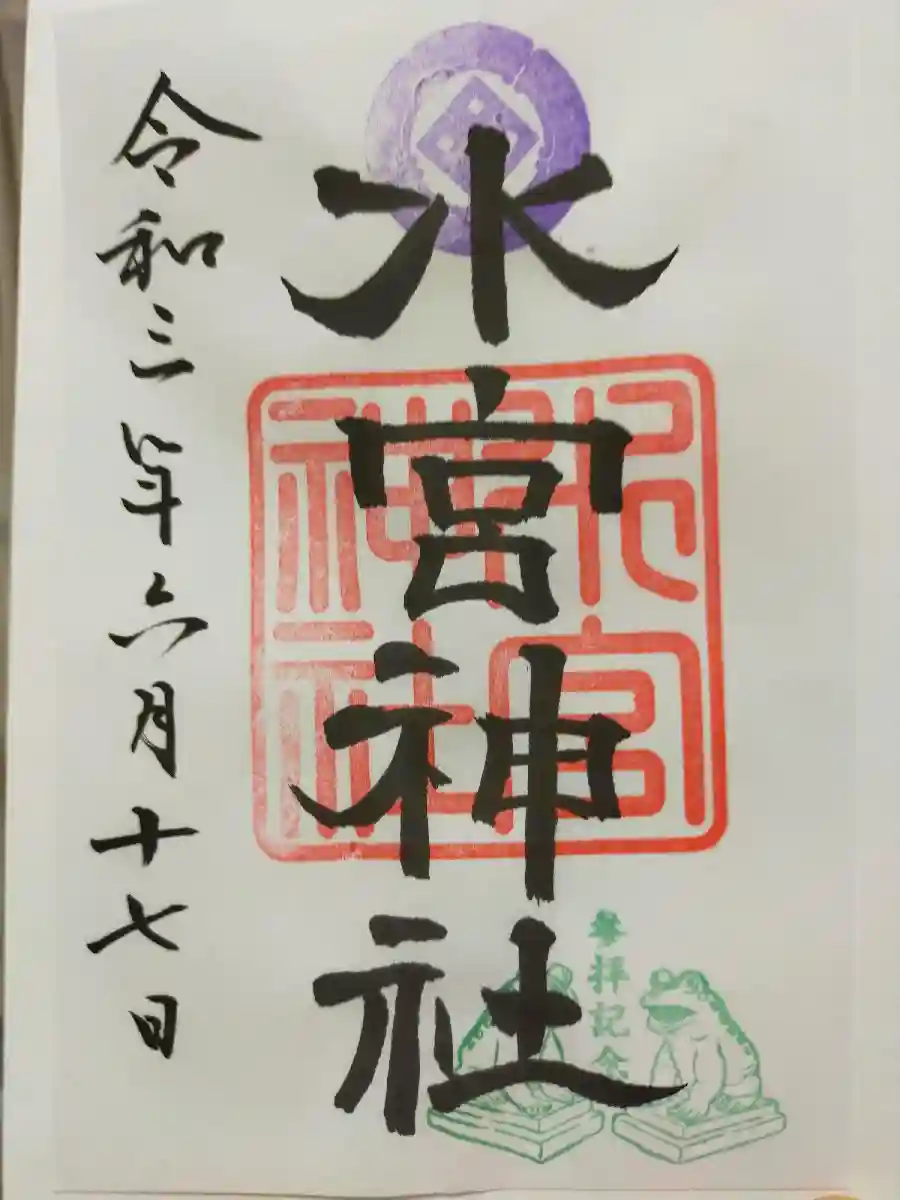 水宮神社
宮
神社
參拝記念
令和三年六月十七日